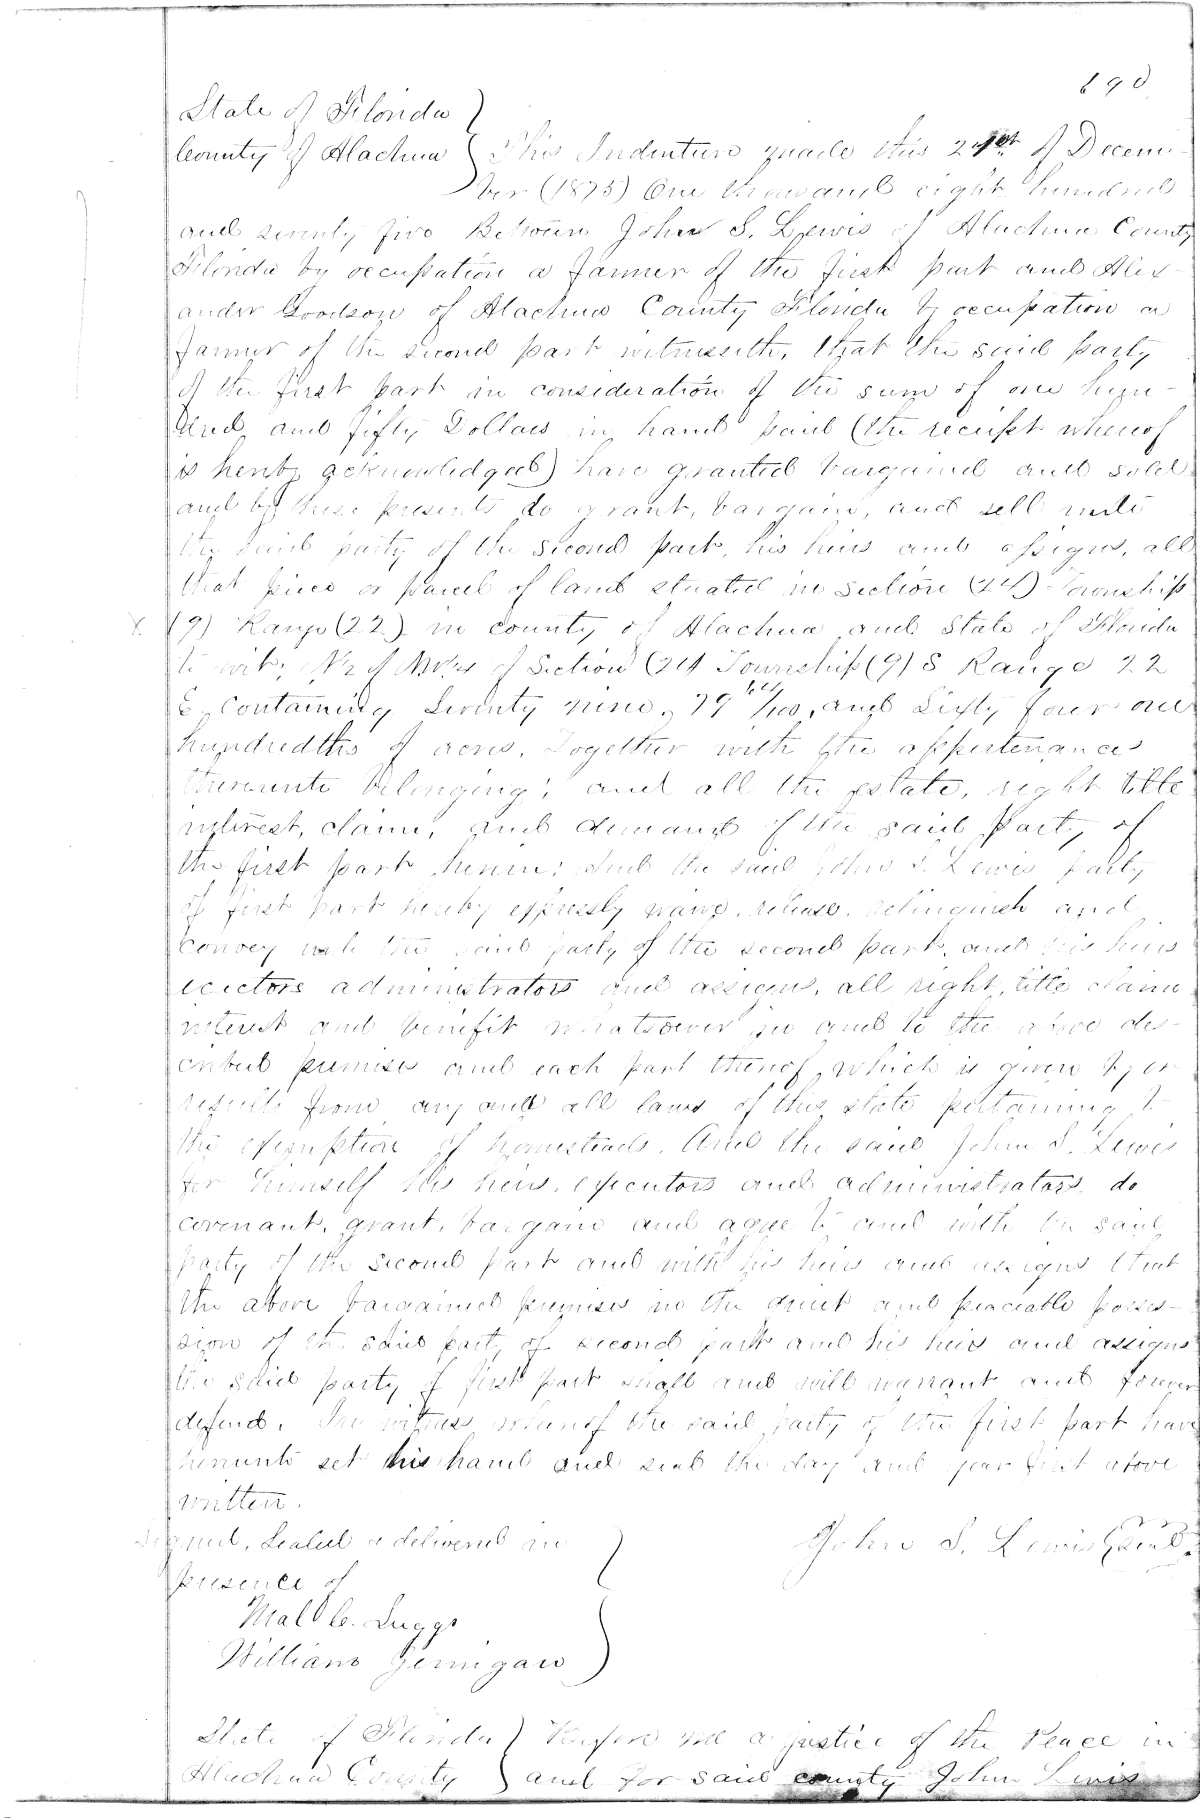 690
State of Florida
County of Alachua } This Indenture made this 21st of Decem-
ber (1875) One thousand eight hundred
and seventy five Between John S. Lewis of Alachua County
Florida by occupation a farmer of the first part and Alex-
ander Goodson of Alachua County Florida by occupation a
farmer of the second part witnesseth, that the said party
of the first part in consideration of the sum of one hun-
dred and fifty Dollars in hand paid (the receipt whereof
is hereby acknowledged) have granted bargained and sold
and by these presents do grant, bargain, and sell unto
the said party of the second part, his heirs and assigns, all
that piece or parcel of land situated in Section (24) Township
X (9) Range (22) in county of Alachua and State of Florida
to wit; N½ of NW¼ of Section (24 Township (9) S Range 22
E, containing Seventy nine, 79 64/100, and Sixty four one
hundredths of acres, Together with the appertenances
thereunto belonging; and all the estate, right title
interest, claim, and demand of the said Party of
the first part herein; And the said John S. Lewis party
of first part hereby expressly waive, release, relinquish and
convey unto the said party of the second part, and his heirs
ecectors administrators and assigns, all right, title claim
interest and benefit whatsoever in and to the above des-
cribed premises and each part thereof which is given by or
results from any and all laws of this state pertaining to
the exemption of homesteads. And the said John S. Lewis
for himself his heirs, executors and administrators, do
covenant, grant, bargain and agree to and with the said
party of the second part and with his heirs and assigns that
the above bargained premises in the quiet and peaceable posses-
sion of the said party of second part and his heirs and assigns
the said party of first part shall and will warrant and forever
defend. In witness whereof the said party of the first part have
hereunto set his hand and seal the day and year first above
written.
Signed, Sealed & delivered in
presence of
John S. Lewis {seal}
Mal C.
William Jernigan
State of Florida } Before me a justice of the Peace in
Alachua County } and for said county John Lewis